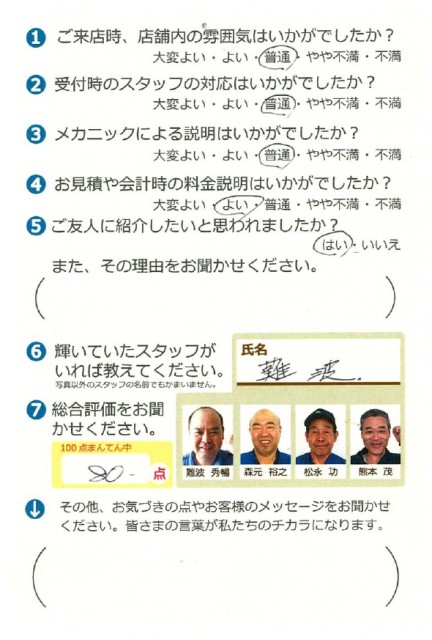 1 ご来店時、店舗内の雰囲気はいかがでしたか？
大変よい・よい・普通・やや不満・不満
2 受付時のスタッフの対応はいかがでしたか？
大変よい・よい・普通・やや不満・不満
3 メカニックによる説明はいかがでしたか？
大変よい・よい・普通・やや不満・不満
4 お見積や会計時の料金説明はいかがでしたか？
大変よい・よい・普通・やや不満・不満
5 ご友人に紹介したいと思われましたか？
はい・いいえ
また、その理由をお聞かせください。
6 輝いていたスタッフが
いれば教えてください。
写真以外のスタッフの名前でもかまいません。
氏名
難波
7 総合評価をお聞
かせください。
100点まんてん中
80 点
難波 秀暢 森元 裕之 松永 功 熊本 茂
↓ その他、お気づきの点やお客様のメッセージをお聞かせ
ください。皆さまの言葉が私たちのチカラになります。